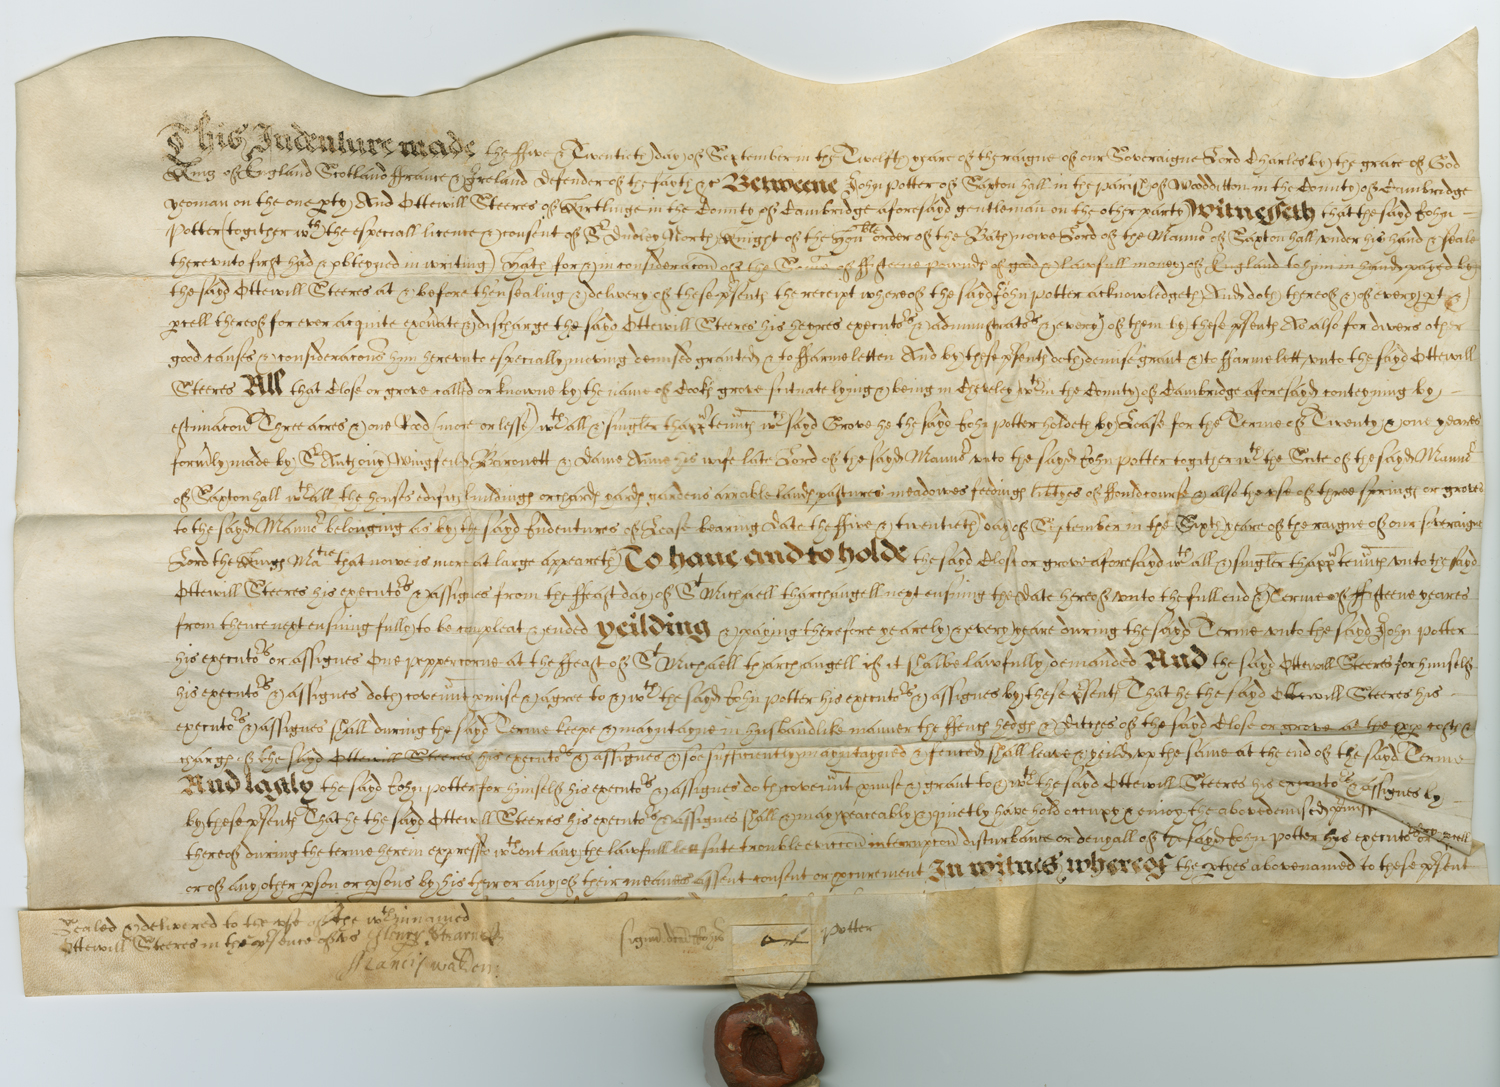 This Indenture made the ffive & Twentieth day of September in the Twelfth yeare of the raigne of our Soveraigne Lord Charles by the grace of God
King of England Scotland ffrance & Ireland Defender of the fayth &c Betweene John Potter of Saxton hall in the parish of Woodditton in the County of Cambridge
yeoman on the one pty And Ottewill Steeres of Kirtlinge in the County of Cambridge aforesayd gentleman on the other party Witnesseth that the sayd John
Potter (together wth the especiall licence & consent of Sr Dudley North Knight of the honble order of the Bath nowe Lord of the Mannor of Saxton hall under his hand & seale
thereunto first had & obteyned in writing) hath for & in consideracon of the Some of ffifteene pownds of good & lawfull money of England to him in hand payed by
the sayd Ottewill Steeres at & before thensealing & delivery of these psents the receipt whereof the sayd John Potter acknowledgeth And doth thereof & of every pt &
pcell thereof for ever acquite exonate & discharge the sayd Ottewill Steeres his heyres executors & administrators & every of them by these psents As also for divers other
good causes & consideracons him hereunto especially moving demised granted & to ffarme letten And by these psents doth demise grant & to ffarme lett unto the sayd Ottewill
Steeres All that Close or grove called or knowne by the name of Cooks grove scituate lying & being in Cheveley wthin the County of Cambridge aforesayd conteyning by
estimacon Three acres & one Rod (more or lesse) wth all & singler thapptennts wch sayd Grove he the sayd John Potter holdeth by Lease for the Terme of Twenty & one yeares
formly made by Sr Anthony Wingfeild Baronett & Dame Anne his wife late Lord of the sayd Mannor unto the sayd John Potter together wth the Scite of the sayd Mannor
of Saxton hall wth all the houses edifics buildings orchards yards gardens arrable lands pastures meadowes feedings libties of ffouldcourse & also the use of three springs or groves
to the sayd Mannor belonging as by the sayd Indentures of Lease bearing date the ffive & twentieth day of September in the Sixth yeare of the raigne of our soveraigne
Lord the Kings Matie that nowe is more at large appeareth To have and to holde the sayd Close or grove aforesayd wth all & singler thapptennts unto the sayd
Ottewill Steeres his executors & assignes from the ffeast day of St Michaell tharchangell next ensuing the date hereof unto the full end & Terme of ffifteene yeares
from thence next ensuing fully to be compleat & ended yeilding & paying therefore yearely & every yeare during the sayd Terme unto the sayd John Potter
his executors or assignes One peppercorne at the ffeast of St Michaell tharchangell if it shalbe lawfully demanded And the sayd Ottewill Steeres for himselfe
his executors & assignes doth covennt pmise & agree to & wth the sayd John Potter his executors & assignes by these psents That he the sayd Ottewill Steeres his
executors & assignes shall during the sayd Terme keepe & mayntayne in husbandlike manner the ffences hedges & ditches of the sayd Close or grove at the pp costs &
charges of the sayd Ottewill Steeres his executors & assignes & soe sufficiently mayntayned & fenced shall leave & yeild upp the same at the end of the sayd Terme
And lastly the sayd John Potter for himselfe his executors & assignes doth covennt pmise & grant to & wth the sayd Ottewill Steeres his executors & assignes by
by these psents That he the sayd Ottewill Steeres his executors & assignes shall & may peaceably & quietly have hold occupy & enioy the abovedemised pmiss
thereof during the terme herein expressed wthout any the lawfull lett suite trouble eviccon interrupcon disturbance or denyall of the sayd John Potter his executors
or of any other pson or psons by his their or any of their meanes assent consent or pcurement In witnes whereof the ptyes abovenamed to these psent
Sealed & delivered to the use of the wthinnamed
Ottewill Steeres in the psence of us Henry
Francis Walden
signd John Potter